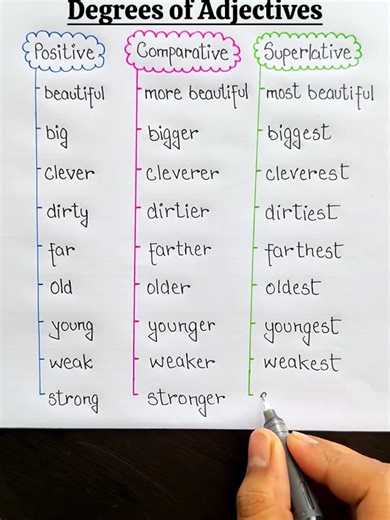 Degrees of Adjectives
Positive Comparative Superlative
beautiful more beautiful most beautiful
big bigger biggest
clever cleverer cleverest
dirty dirtier dirtiest
far farther farthest
old older oldest
young younger youngest
weak weaker weakest
strong stronger